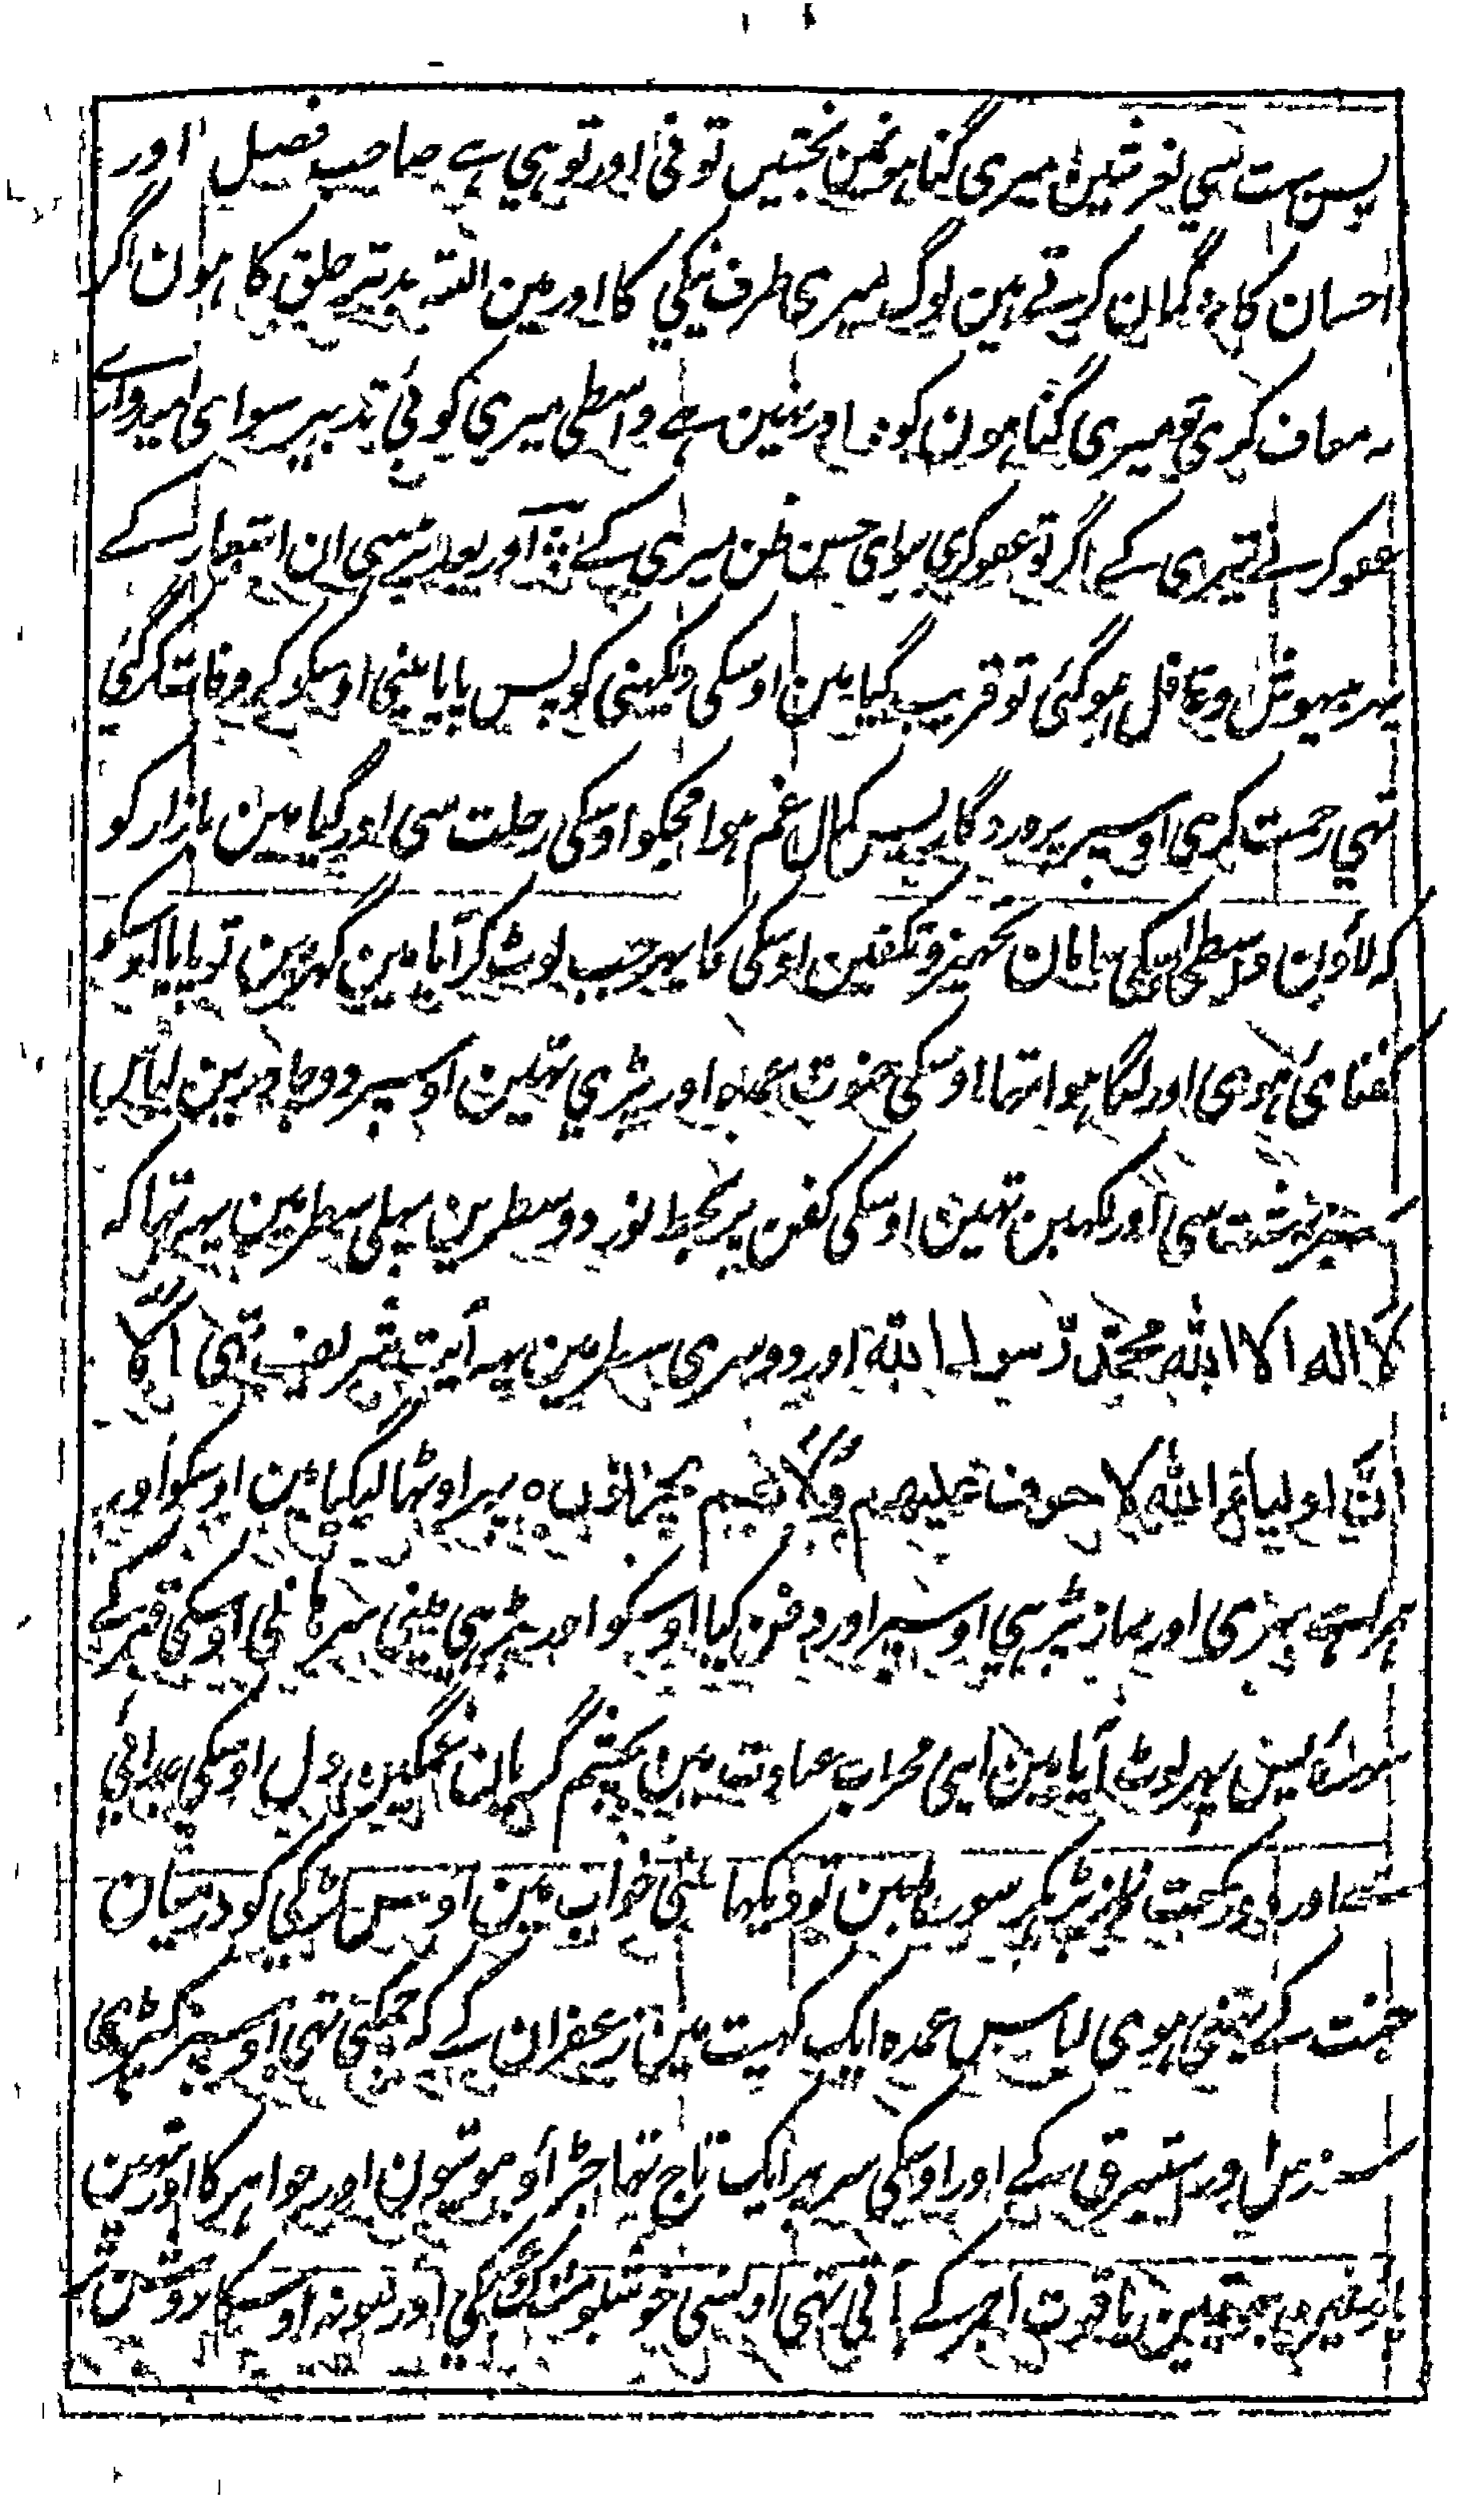 پس بہت سی لغزشین میری گناہونمین بخشیں تونی اور توہی ہے صاحب فضل اور
احسان کا ہ گمان کرتے ہین لوگ میری طرف نیکی کا اور مین البتہ بدتر خلق کا ہون اگر
نہ معاف کری تو میری گناہون کو ہ اور نہین ہے واسطی میری کوئی تدبیر سوای امیدواری
عفو کرنے تیری کے اگر تو عفو کری سوای حسن ظن میری کے ہ اور بعد پڑہنے ان اشعار کے
پہر بیہوش و غافل ہوگئی تو قریب گیا مین اوسکی دیکہنی کو پس پایا مینی اوسکو کے وفات کرگئی
تہی رحمت کری اوسپر پروردگار پس کمال غم ہوا مجکو اوسکی رحلت سی اور گیا مین بازار کو
کہ لاؤن واسطی اوسکی سامان تجہیز و تکفین اوسکی کا پہر جب لوٹ کر آیا مین گہر مین تو پایا اوسکو
کفنائی ہوی اور لگا ہوا تہا اوسکی حنوت عمدہ اور پڑی تہین اوسپر دو چادرین لباس
سبز جنت سی اور لکہین تہین اوسکی کفن پر بخط نور دو سطرین پہلی سطر مین یہہ تہا کہ
لا الہ الا اللہ محمد رسول اللہ اور دوسری سطر مین یہہ آیت شریف تہی الا
ان اولیاء اللہ لا خوف علیہم ولا ہم یحزنون ہ پہر اوٹہا لیگیا مین اوسکو اور
ہمراہی میری اور نماز پڑہی اوسپر اور دفن کیا اوسکو اور پڑہی مینی سرہانی اوسکی قبر کے
سورہ یٰسین پہر لوٹ آیا مین اپنی محراب عبادت مین بچشم گریان غمگین دل اوسکی جدائی
سے اور دو رکعت نماز پڑہکر سورہا مین تو دیکہا مینی خواب مین اوس لڑکی کو درمیان
جنت کے پہنی ہوی لباس عمدہ ایک کہیت مین زعفران کے کہ چمکتی تہی اور سبز کپڑی
سندس اور استبرق کے اور اوسکی سر پر ایک تاج تہا جڑاؤ موتیون اور جواہر کا اور تہین
پاؤنمین جوتیین یاقوت احمر کے آتی تہی اوسی خوشبو مشک کی اور مونہہ اوسکا روشن